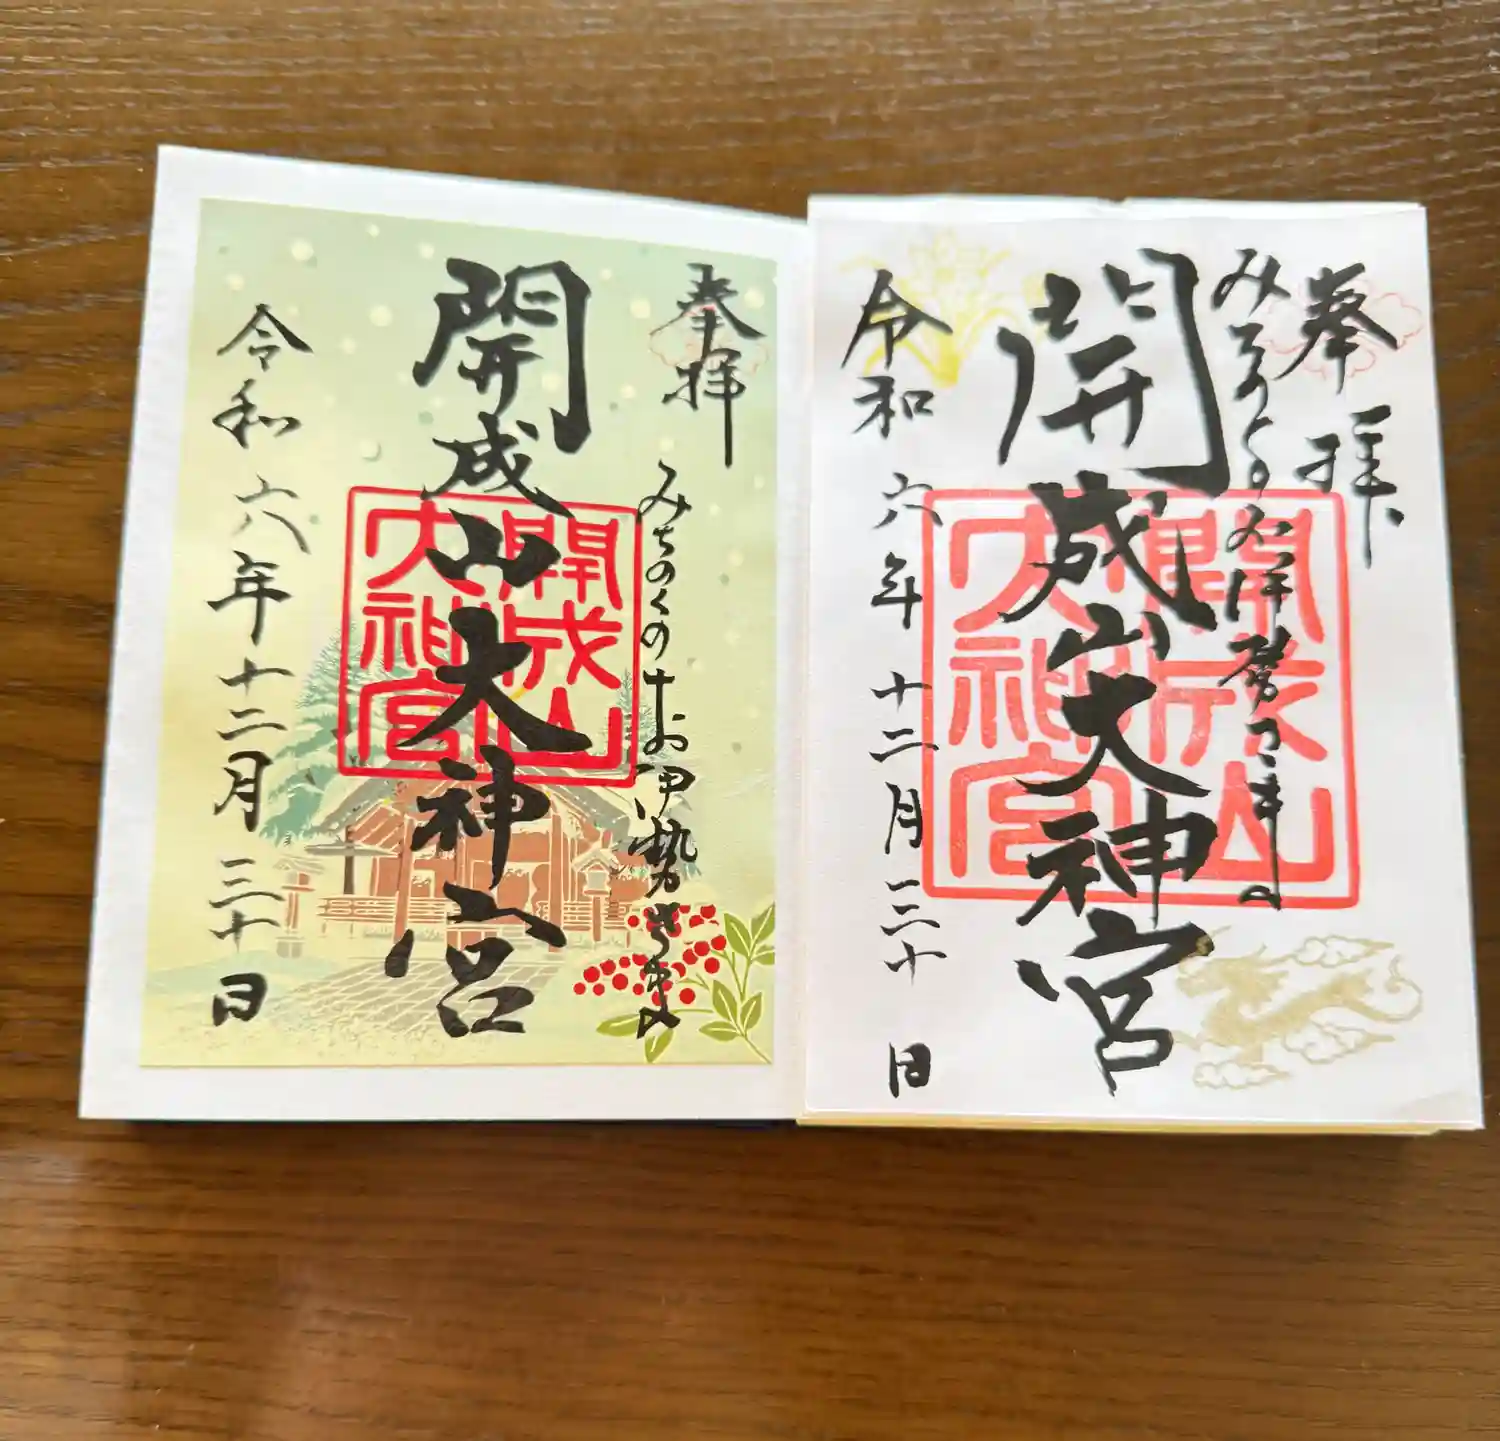 奉拝
みちのくのお伊勢さま
開成山大神宮
開成山
大神宮
令和六年十二月三十日
奉拝
開成山大神宮
開成山
大神宮
令和六年十二月三十日